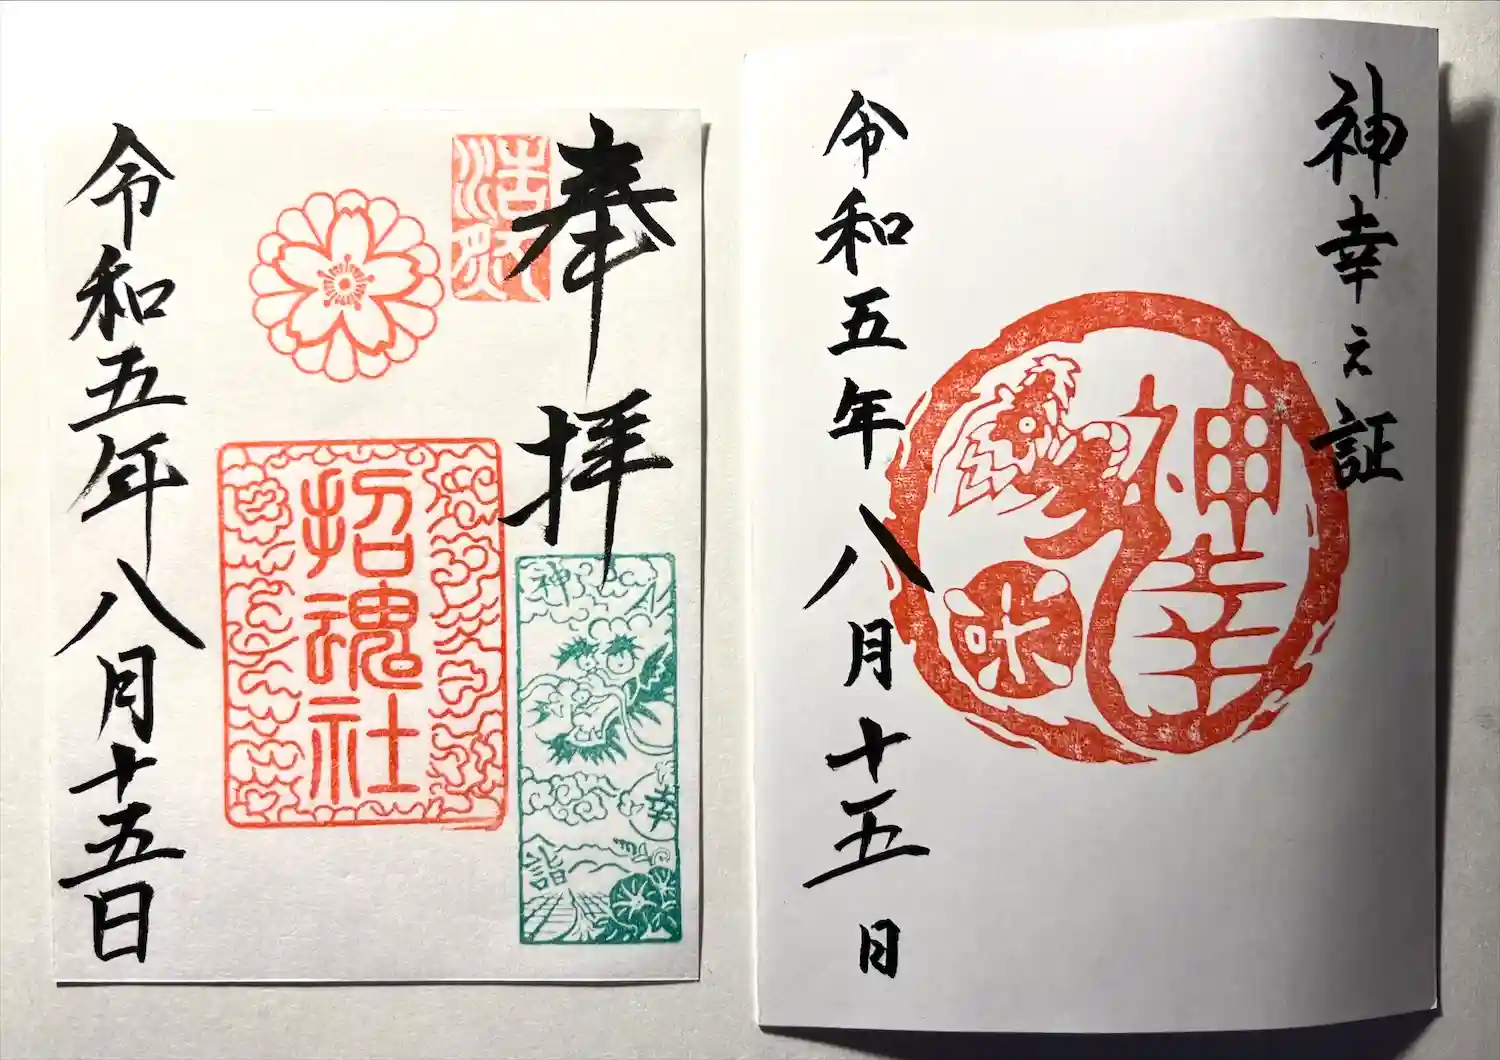 奉拝
招魂社
神幸詣
令和五年八月十五日
神幸之証
神幸
叶
令和五年八月十五日